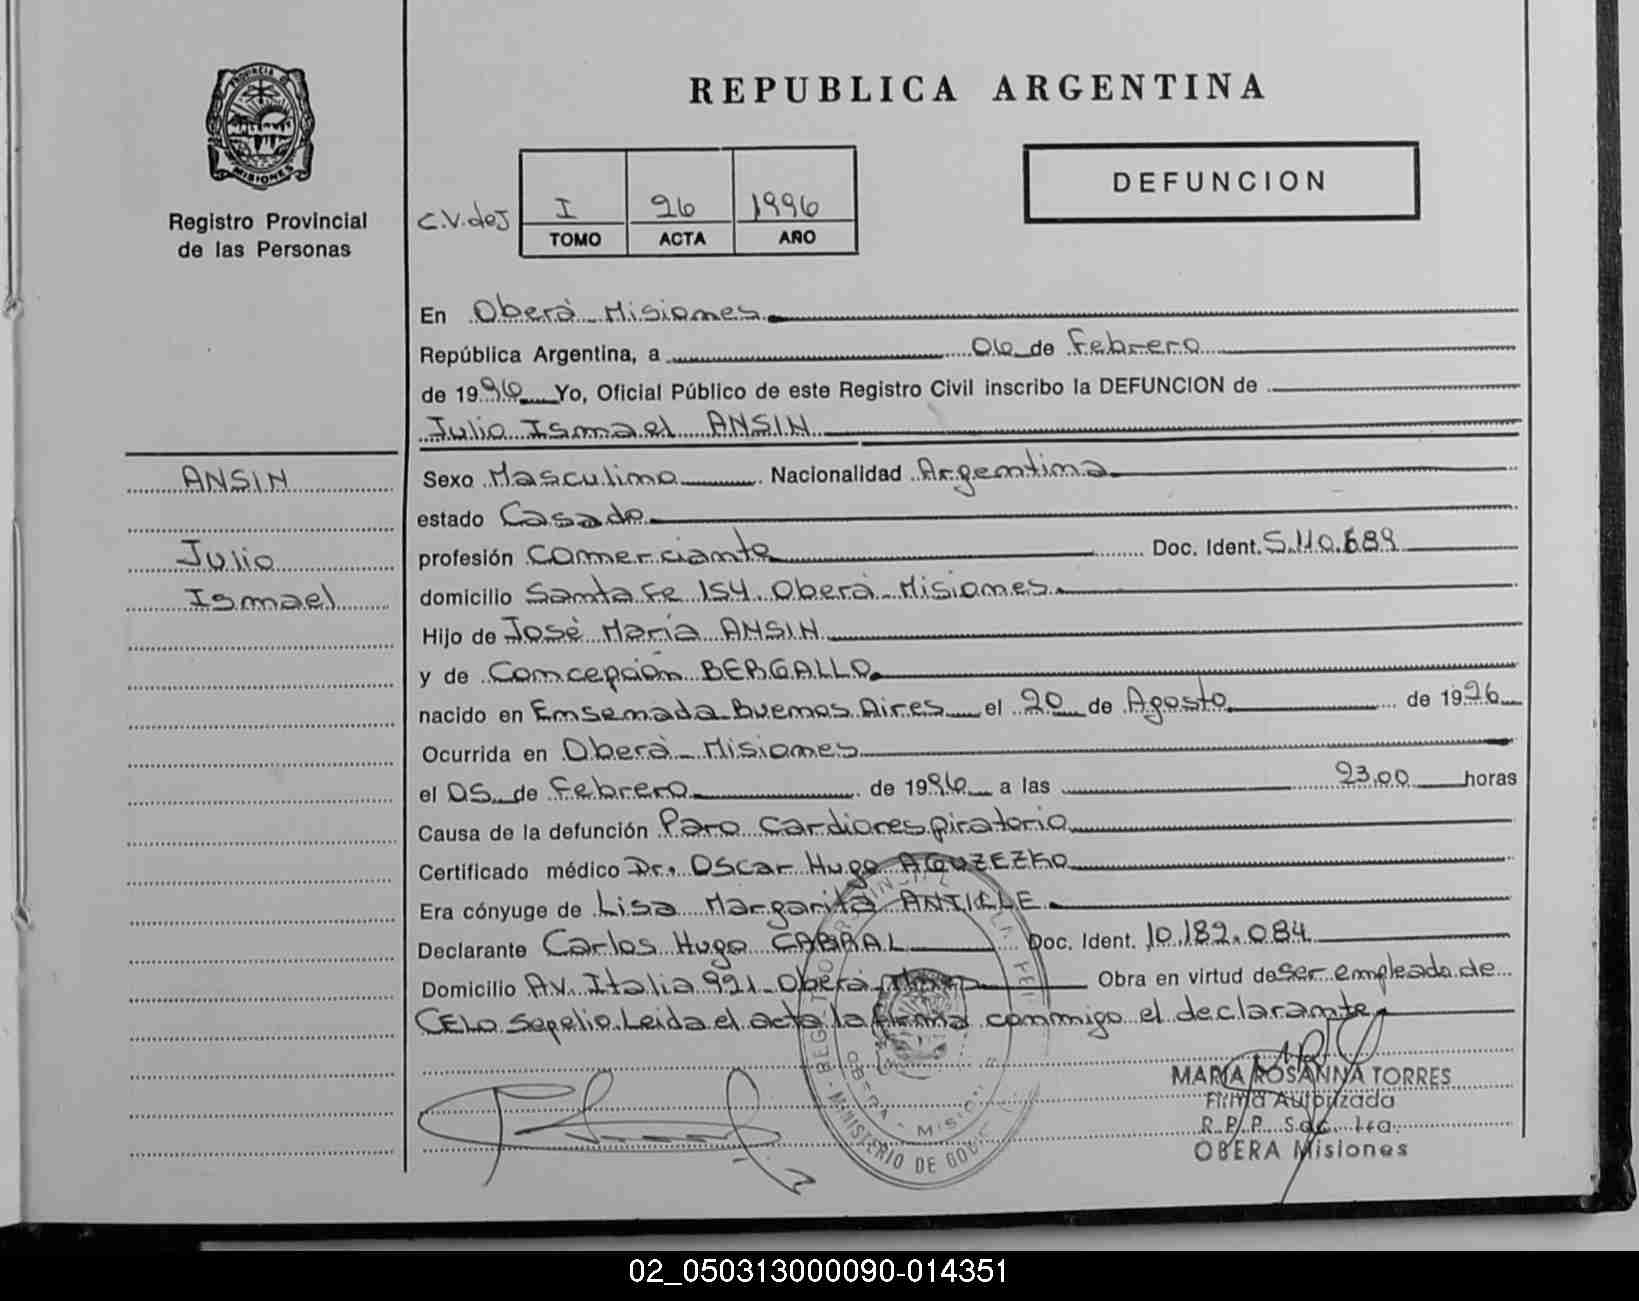 PROVINCIA DE
MISIONES
Registro Provincial
de las Personas
REPUBLICA ARGENTINA
DEFUNCION
C.V. de J
I 26 1996
TOMO ACTA AÑO
En Oberá Misiones
República Argentina, a 06 de Febrero
de 1996 Yo, Oficial Público de este Registro Civil inscribo la DEFUNCION de
Julio Ismael ANSIN
ANSIN
Julio
Ismael
Sexo Masculino Nacionalidad Argentina
estado Casado
profesión Comerciante Doc. Ident. 5.110.689
domicilio Santa Fe 154 Oberá Misiones
Hijo de José María ANSIN
y de Concepción BERGALLO
nacido en Ensenada Buenos Aires el 20 de Agosto de 1926
Ocurrida en Oberá Misiones
el 05 de Febrero de 1996 a las 23,00 horas
Causa de la defunción Paro Cardiorespiratorio
Certificado médico Dr. Oscar Hugo AGUZEZKO
Era cónyuge de Lisa Margarita ANTILLE
Declarante Carlos Hugo CABRAL Doc. Ident. 10.182.084
Domicilio Av. Italia 991 Oberá Mnes Obra en virtud de ser empleado de
CELO Sepelio Leida el acta la firma conmigo el declarante
MARIA ROSANNA TORRES
Firma Autorizada
R. P. P.
OBERA Misiones
MINISTERIO DE GOB
OBERA - MISIO
02_050313000090-014351